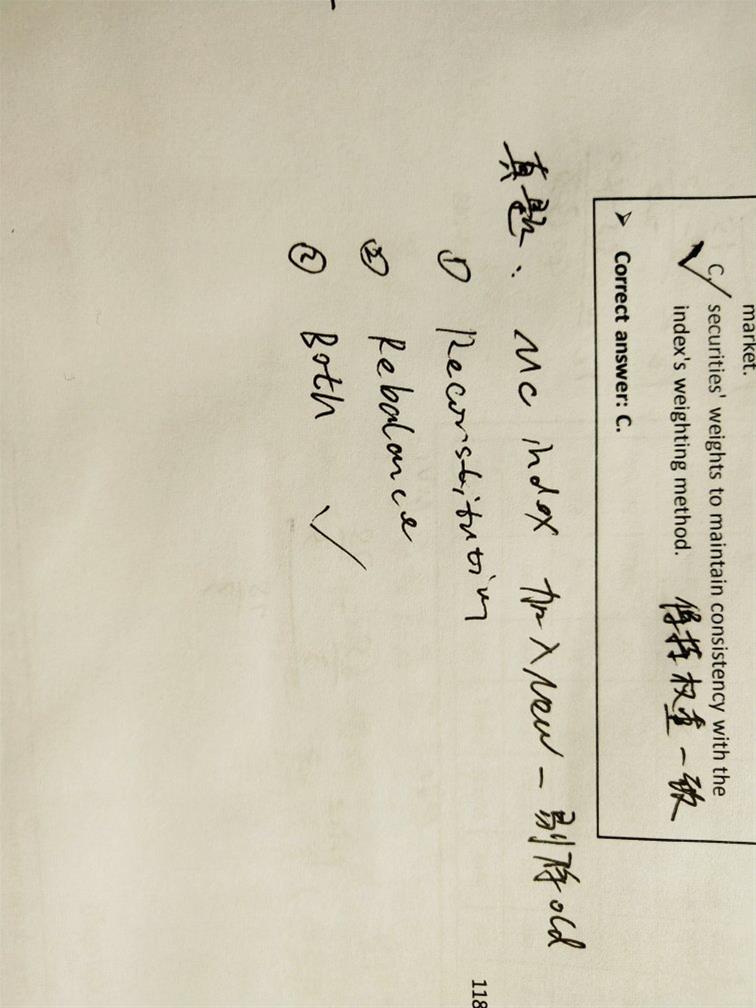 market.
C. securities' weights to maintain consistency with the
index's weighting method. 保持权重一致
➢ Correct answer: C.
真题: MC index 加入 new - 剔除 old
① Reconstitution
② Rebalance
② Both ✓
118